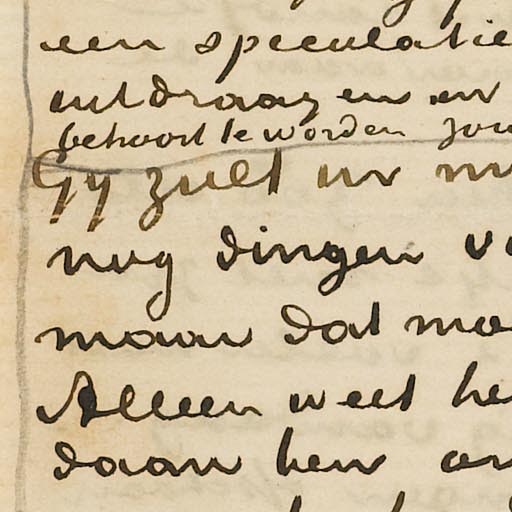 een speculatie
uitdraag en en
behoort te worden zou
Gy zult er
nog dingen
maar dat
Alleen weet
daar ben